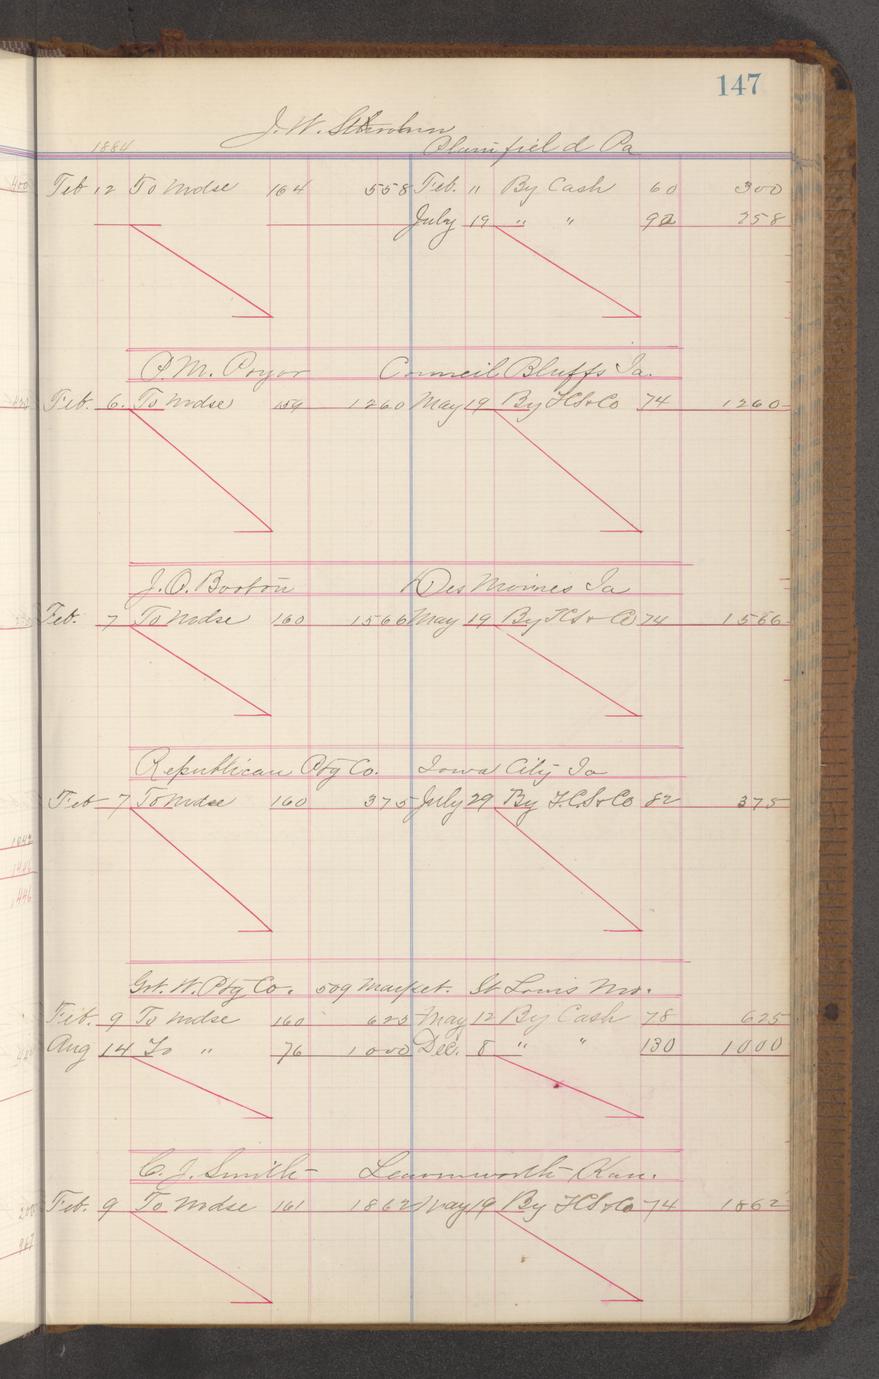 147
J. W.
1884 Plainfield Pa
Feb 12 To Mdse 164 558 Feb. 11 By Cash 60 300
July 19 " " 92 258
P. M. Pryor Council Bluffs Ia.
Feb. 6. To Mdse 159 1260 May 19 By H.S.&Co 74 1260
J. O. Des Moines Ia
Feb. 7 To Mdse 160 1566 May 19 By H.S.&Co 74 1566
Republican Ptg Co. Iowa City Ia
Feb 7 To Mdse 160 375 July 29 By H.C.S.&Co 82 375
Grt. W. Ptg Co. 509 Market. St Louis Mo.
Feb. 9 To Mdse 160 625 May 12 By Cash 78 625
Aug 14 To " 76 1000 Dec. 8 " " 130 1000
C. J. Smith Leavenworth Kan.
Feb. 9 To Mdse 161 1862 May 19 By H.S.&Co 74 1862